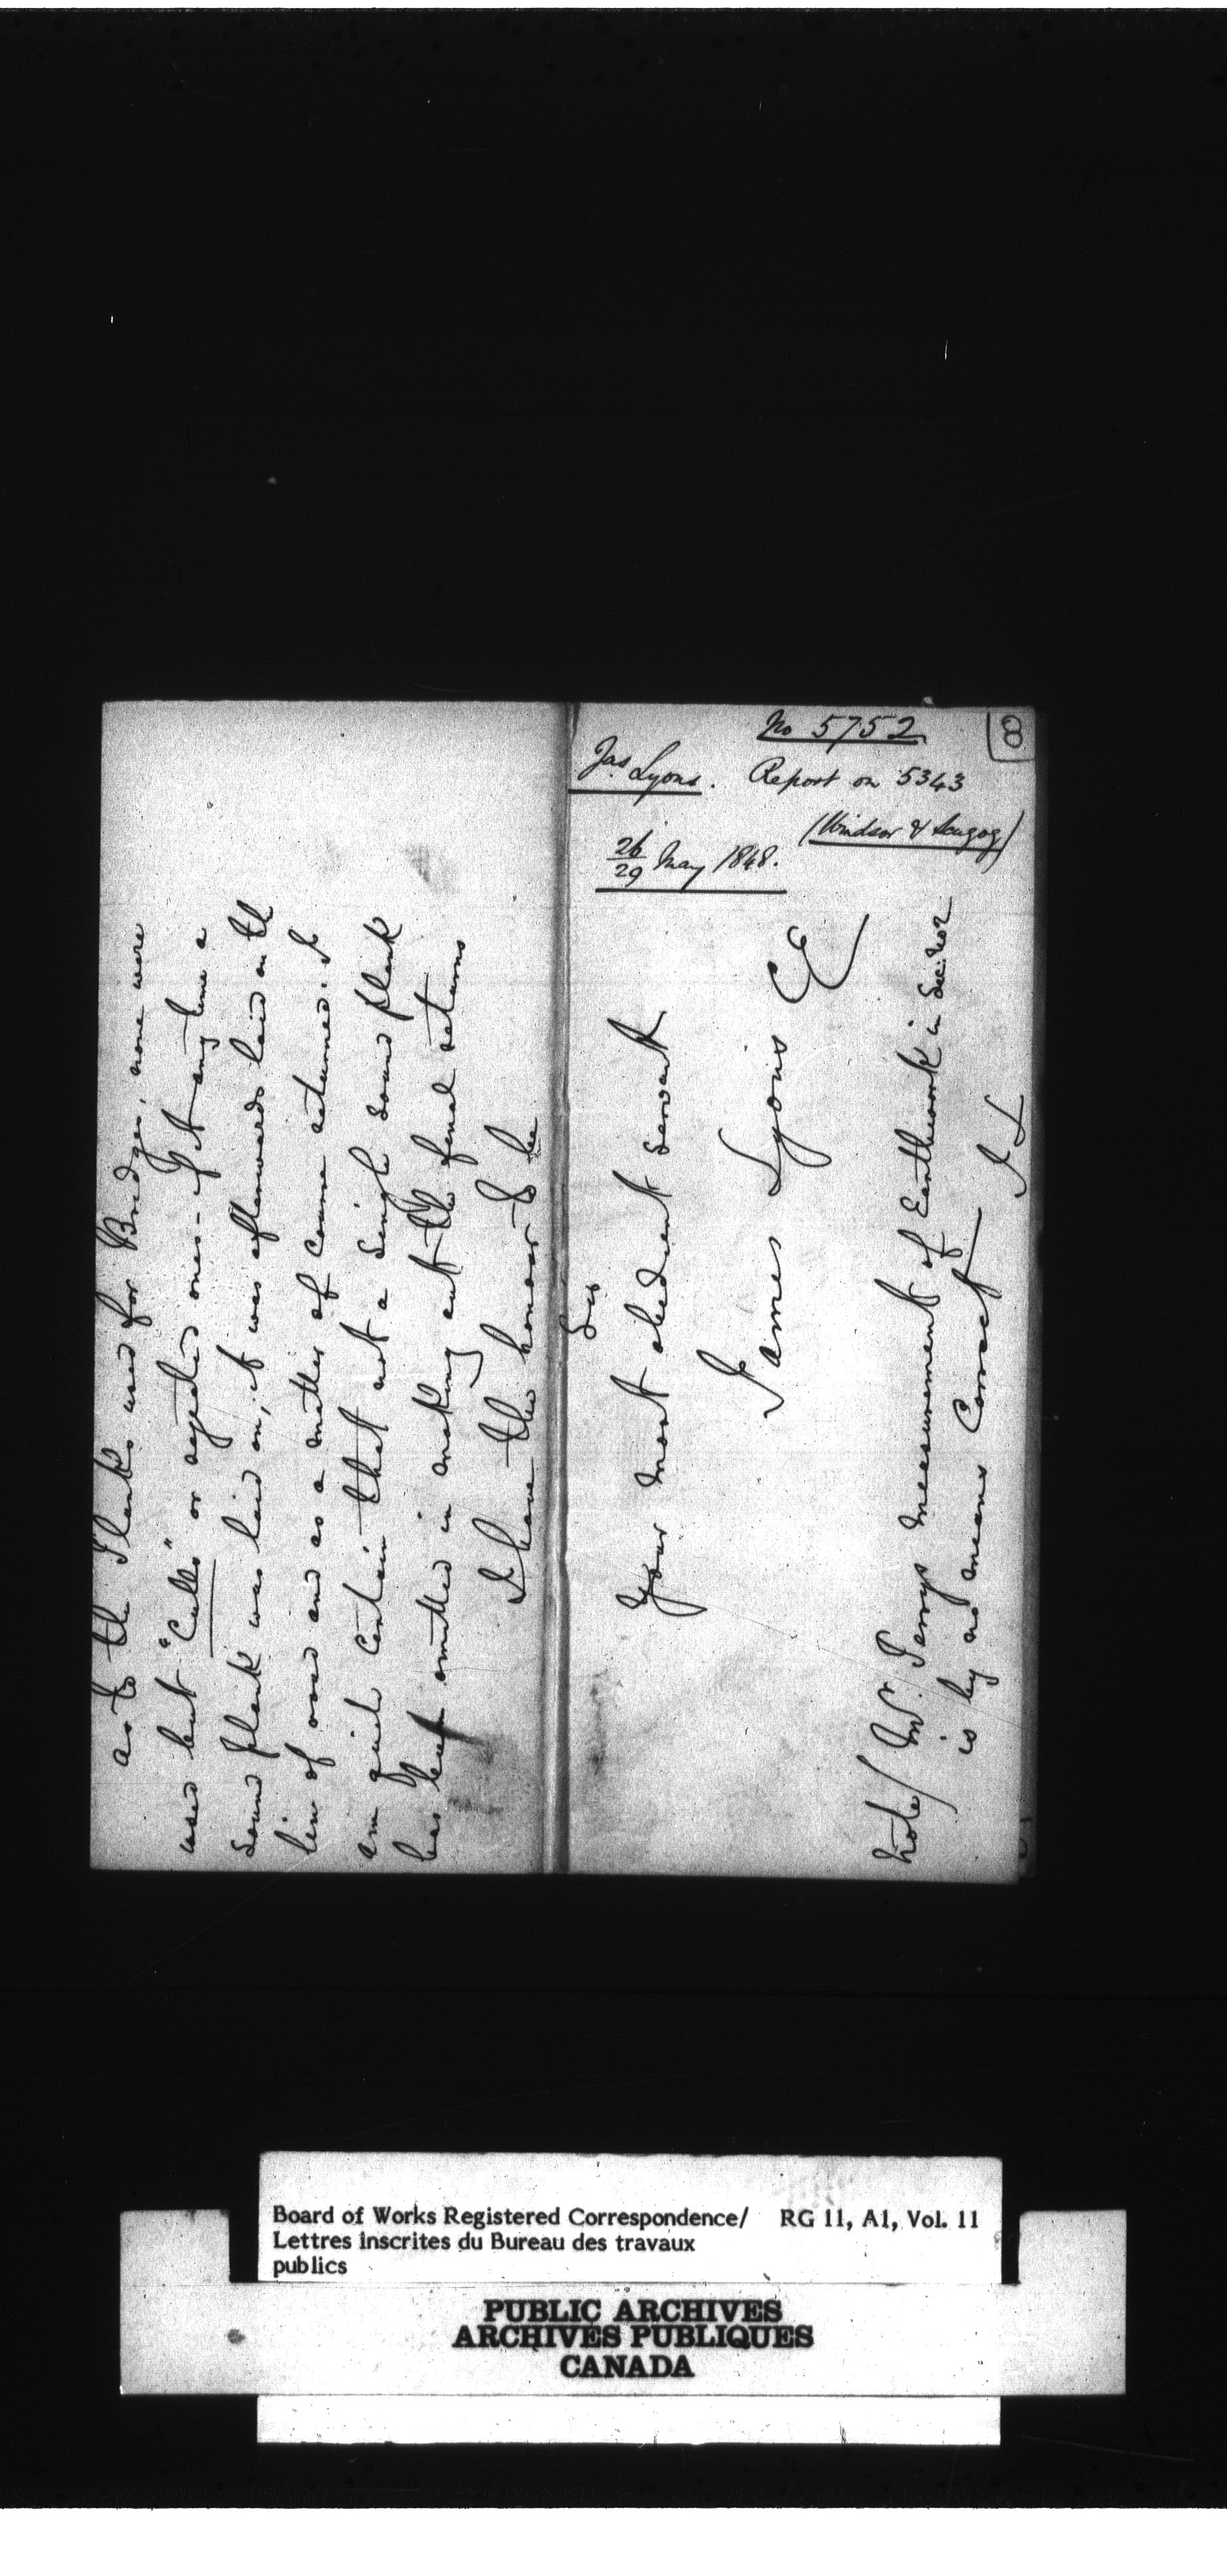 No 5752
8
Jas Lyons. Report on 5343
(Windsor & Scugog)
26/29 May 1848.
as to the Planks used for Bridges, none were
used but "Culls" or rejected ones - if at any time a
Sound plank was laid on, it was afterwards laid on the
line of road and as a matter of course returned. I
am quite certain that not a Single Sound plank
has been omitted in making out the final returns
I have the honour to be
Sir
Your most obedient Servant
James Lyons E
Note/ Mr. Perrys measurement of Earthwork in Sec: No 2
is by no means Correct
J L
Board of Works Registered Correspondence/ RG 11, A1, Vol. 11
Lettres inscrites du Bureau des travaux
publics
PUBLIC ARCHIVES
ARCHIVES PUBLIQUES
CANADA